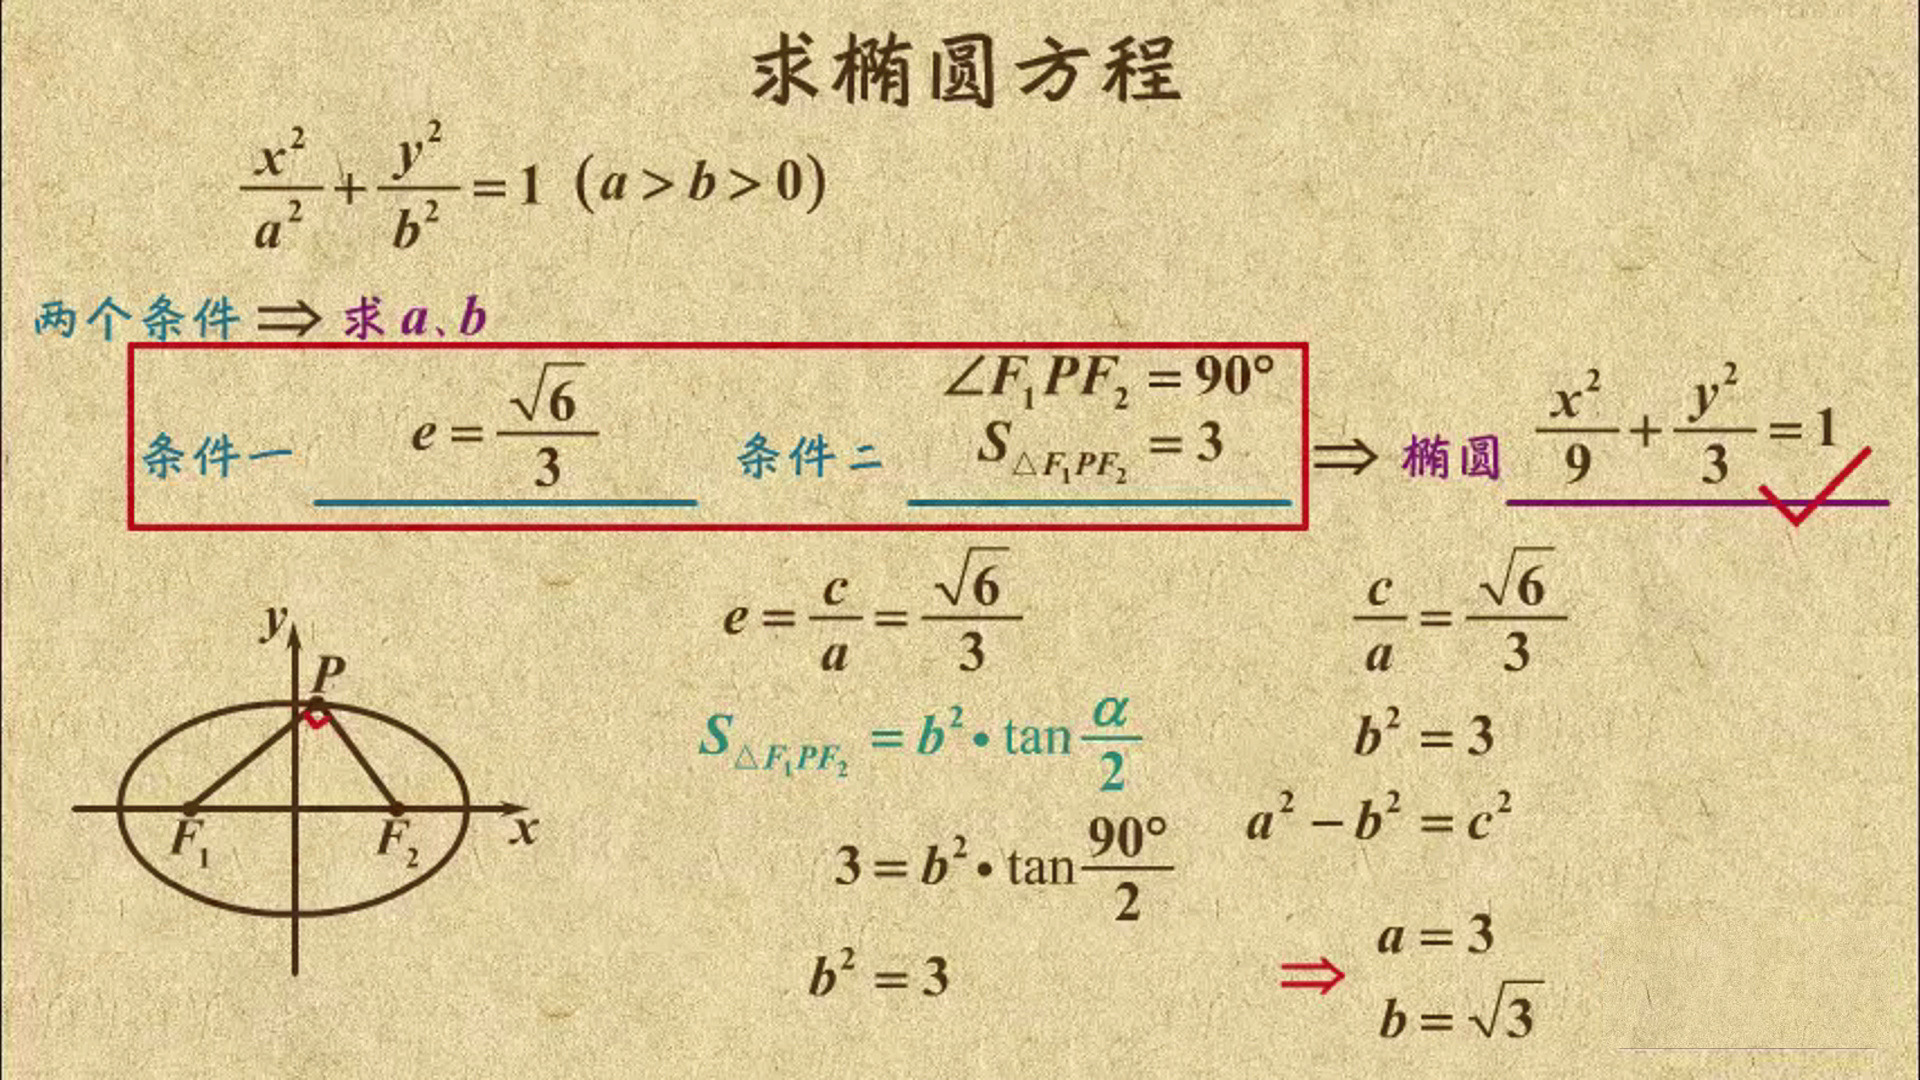 求椭圆方程
x²/a² + y²/b² = 1 (a > b > 0)
两个条件 ⇒ 求 a、b
条件一 e = √6/3 条件二 ∠F₁PF₂ = 90° S△F₁PF₂ = 3 ⇒ 椭圆 x²/9 + y²/3 = 1
y
P
F₁
F₂
x
e = c/a = √6/3
S△F₁PF₂ = b² • tan α/2
3 = b² • tan 90°/2
b² = 3
c/a = √6/3
b² = 3
a² − b² = c²
⇒ a = 3
b = √3